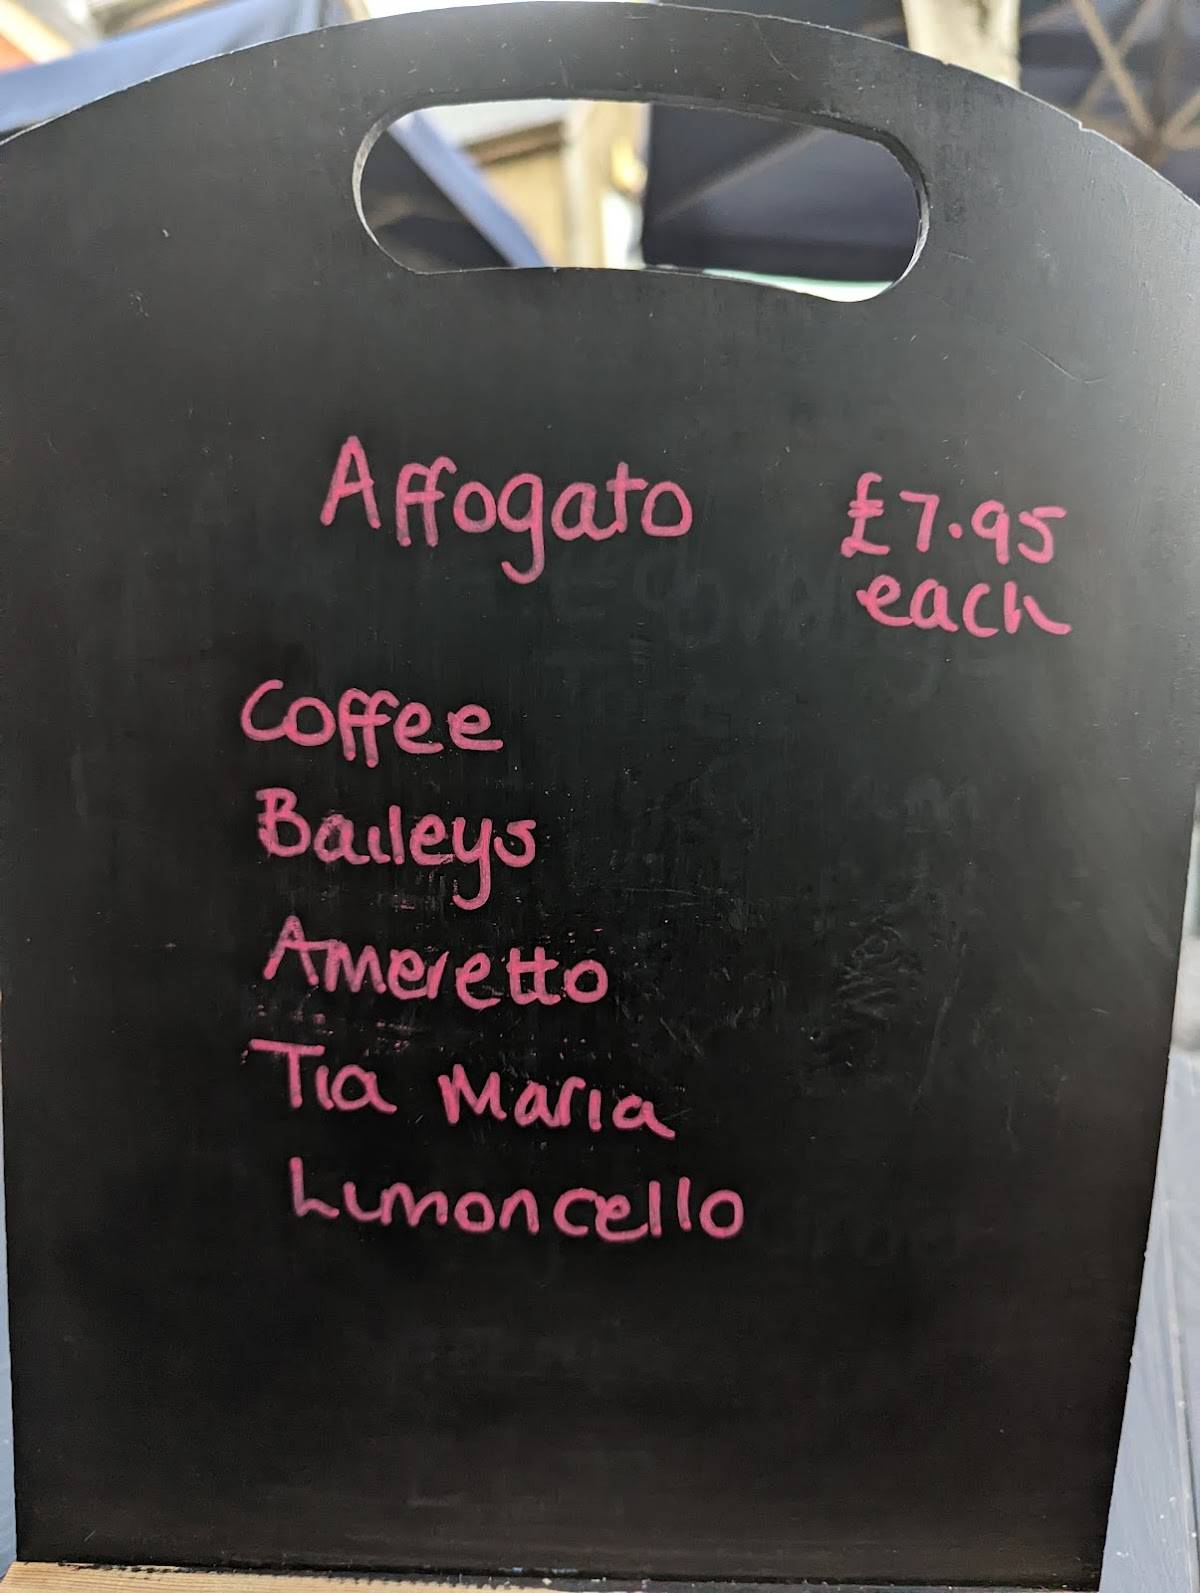 Affogato £7.95
each
Coffee
Baileys
Ameretto
Tia Maria
Limoncello